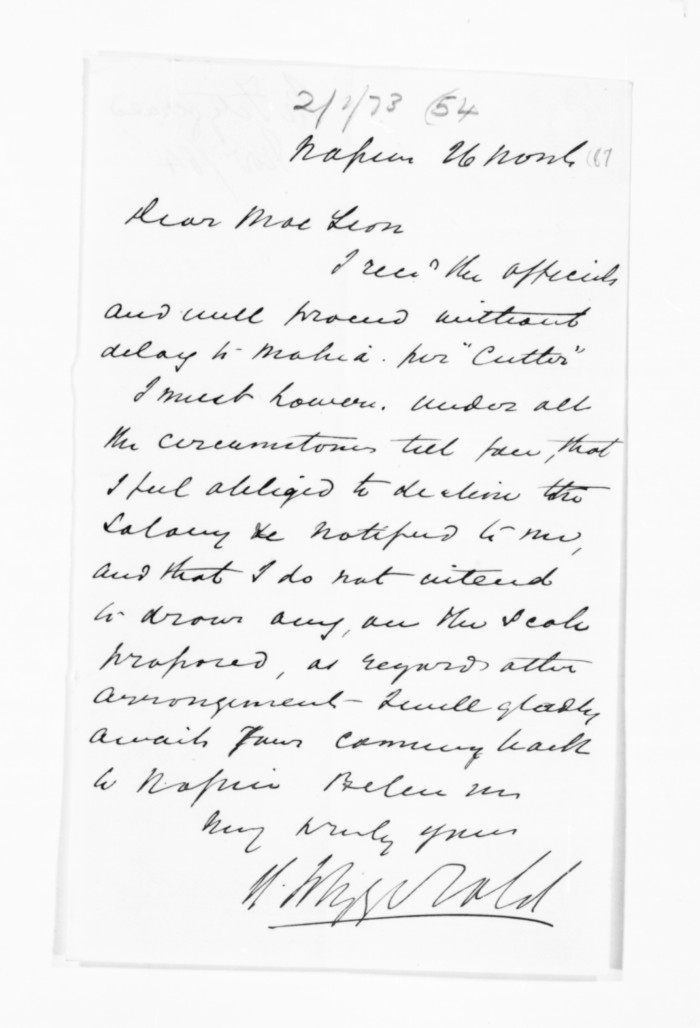 2/1/73 (54
Napier 26 Novb (67
Dear Mac Lean
I recd the officials
and will proceed without
delay to Mahia. per "Cutter"
I must however. under all
the circumstances tell you, that
I feel obliged to decline the
Salary &c notified to me,
and that I do not intend
to draw any, on the Scale
proposed, as regards other
arrangement I will gladly
await your coming back
to Napier Believe me
Very truly yours
FitzGerald